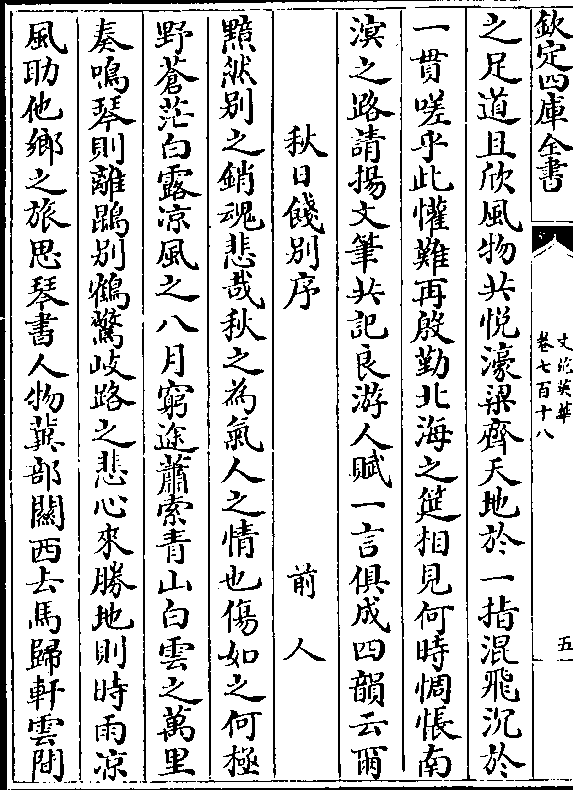 欽定四庫全書
文苑英華
卷七百十八
五
之足道且欣風物共悦濠梁齊天地於一指混飛沉於
一貫嗟乎此懽難再殷勤北海之筵相見何時惆悵南
溟之路請揚文筆共記良游人賦一言俱成四韻云爾
秋日餞別序 前人
黯然別之銷魂悲哉秋之為氣人之情也傷如之何極
野蒼茫白露凉風之八月窮途蕭索青山白雲之萬里
奏鳴琴則離鵾別鶴驚岐路之悲心來勝地則時雨凉
風助他鄉之旅思琴書人物冀部關西去馬歸軒雲間